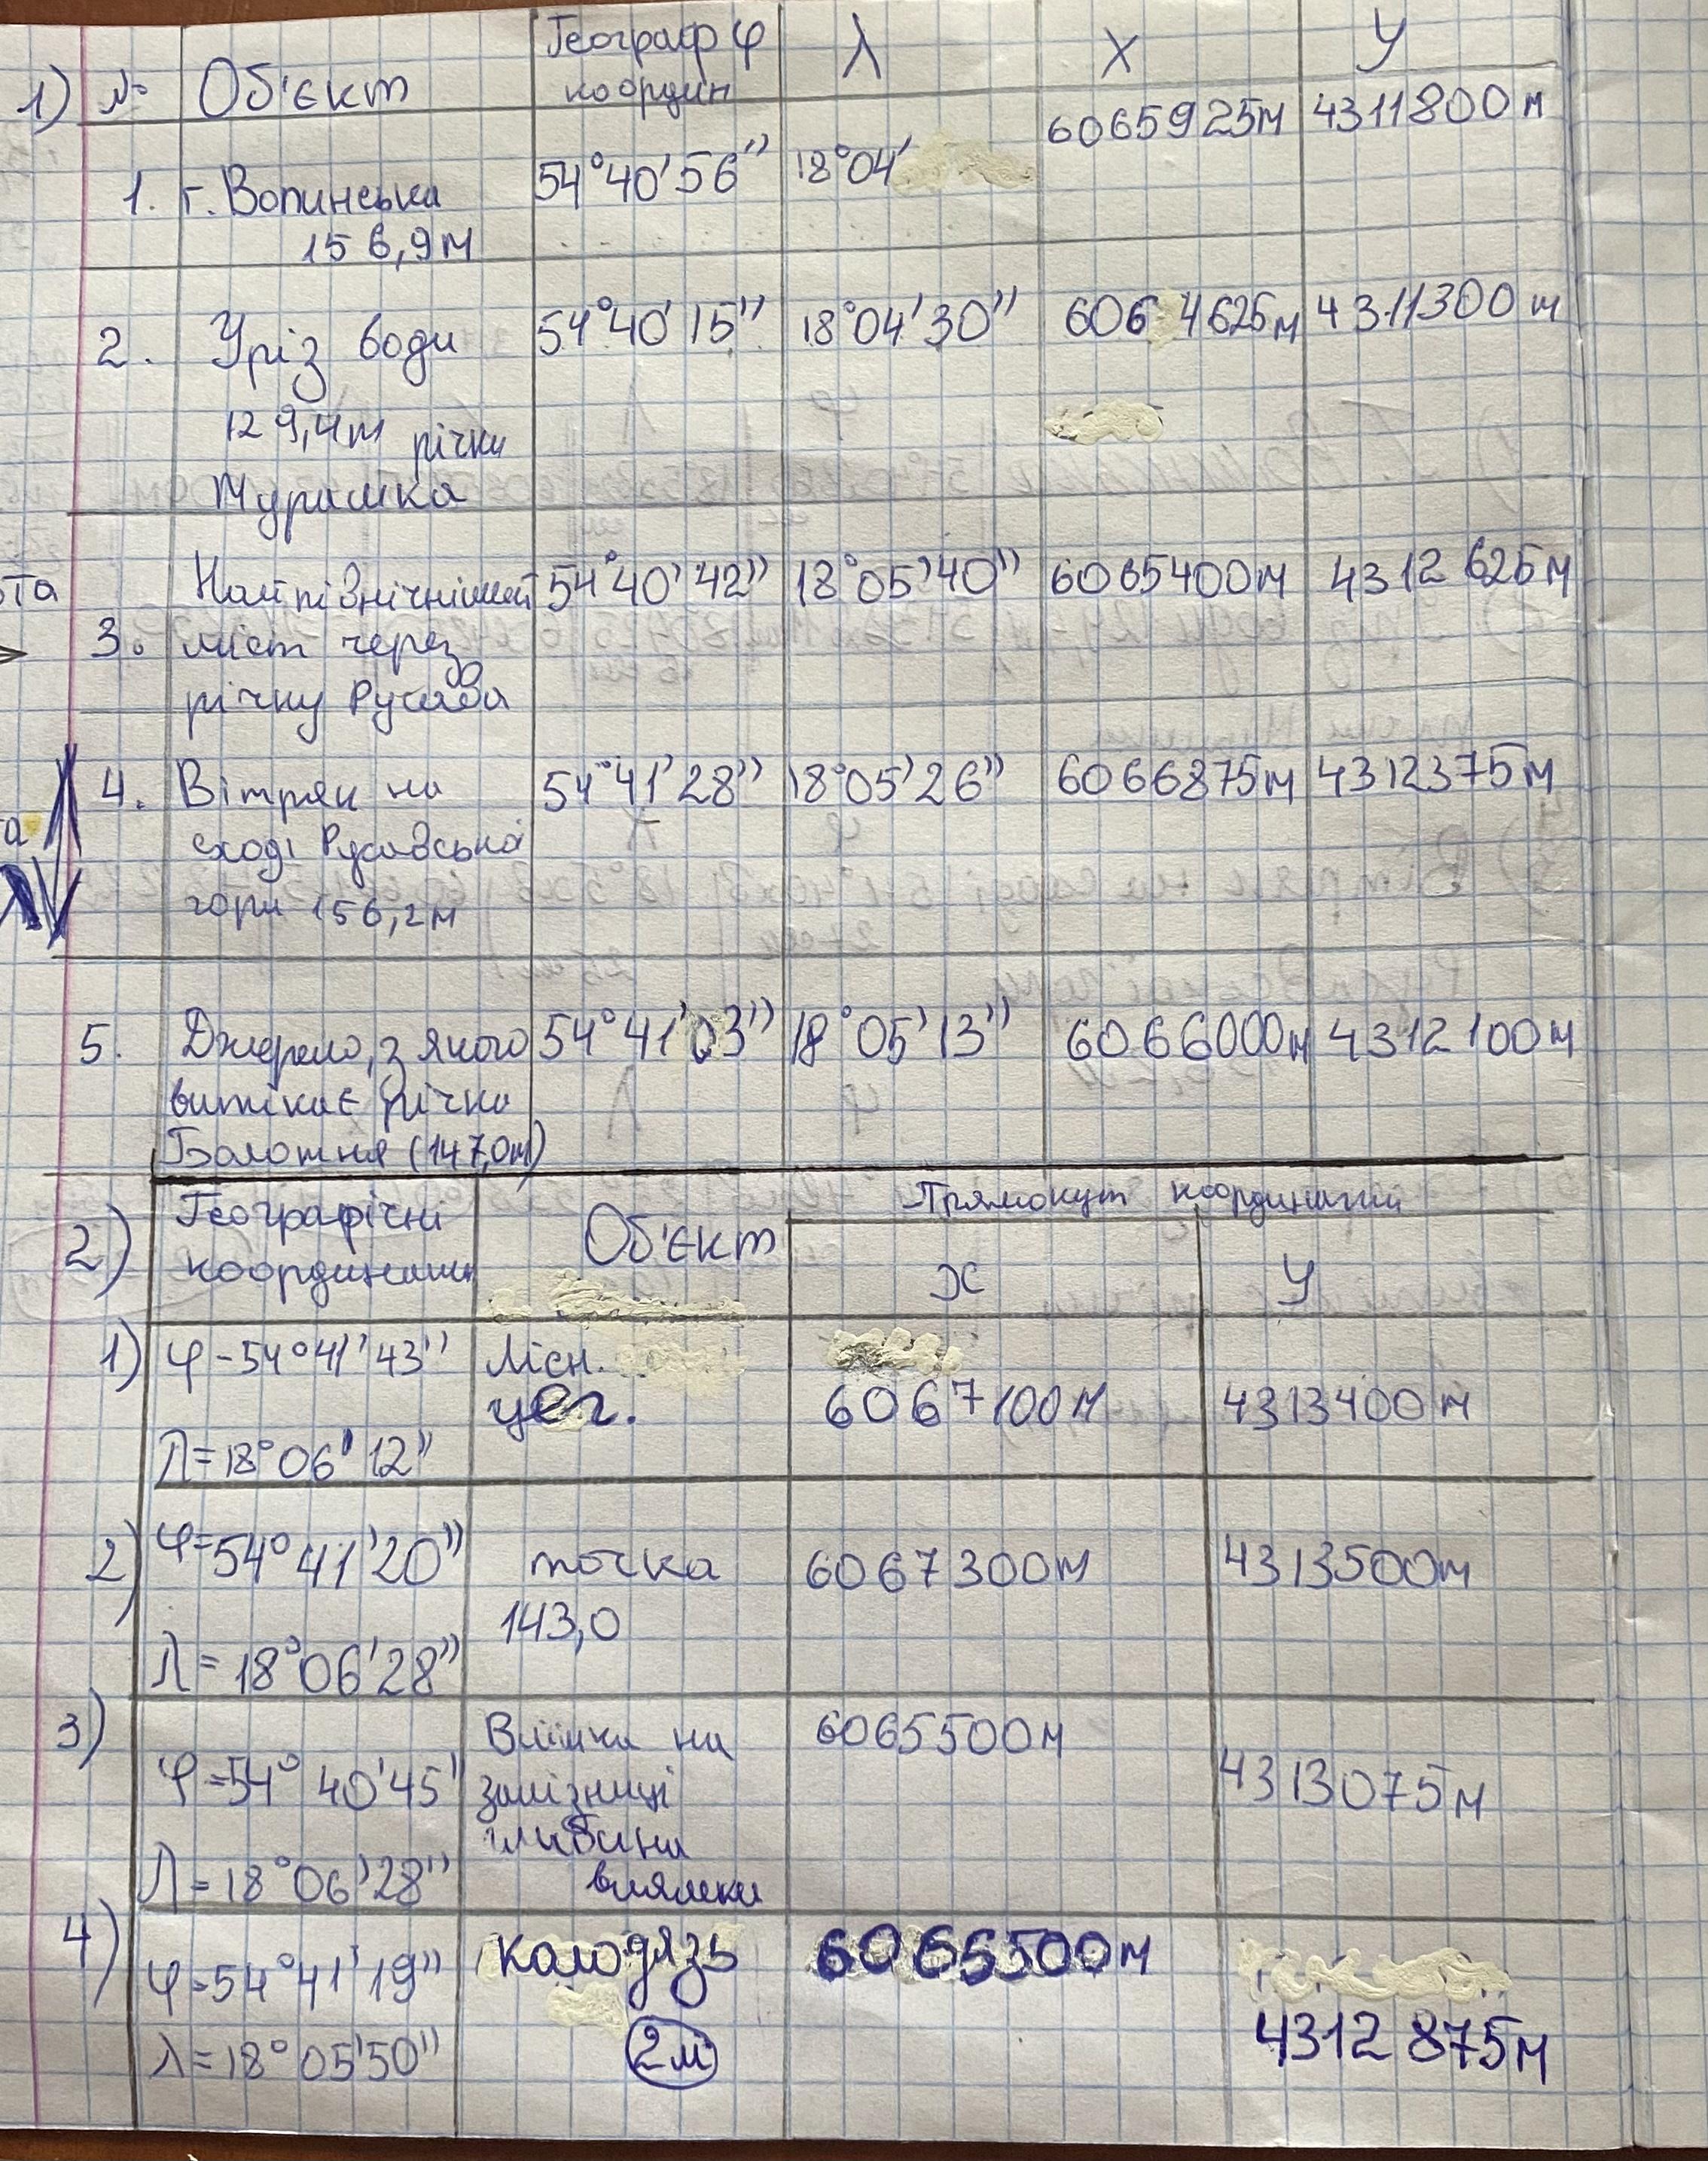 1) № Об'єкт Географ φ координ λ X У
1. г. Вопинська 54°40'56'' 18°04' 6065925м 4311800м
156,9м
2. Уріз води 54°40'15'' 18°04'30'' 6064625м 4311300м
129,4м річки
Мурашка
Найпівнічніший 54°40'42'' 18°05'40'' 6065400м 4312625м
3. міст через
річку Русава
4. Вітряк на 54°41'28'' 18°05'26'' 6066875м 4312375м
сході Русавської
гори 156,2м
5. Джерело, з якого 54°41'03'' 18°05'13'' 6066000м 4312100м
витікає річка
Болотня (147,0м)
2) Географічні координати Об'єкт Прямокут координати
х У
1) φ-54°41'43'' Лісн. 6067100м 4313400м
цег.
λ=18°06'12''
2) φ=54°41'20'' точка 6067300м 4313500м
143,0
λ=18°06'28''
3) Виїмка на 6065500м
φ=54°40'45' залізниці 4313075м
глибина
λ=18°06'28'' виямки
4) φ=54°41'19'' колодязь 6066500м
λ=18°05'50'' 2м 4312875м
та